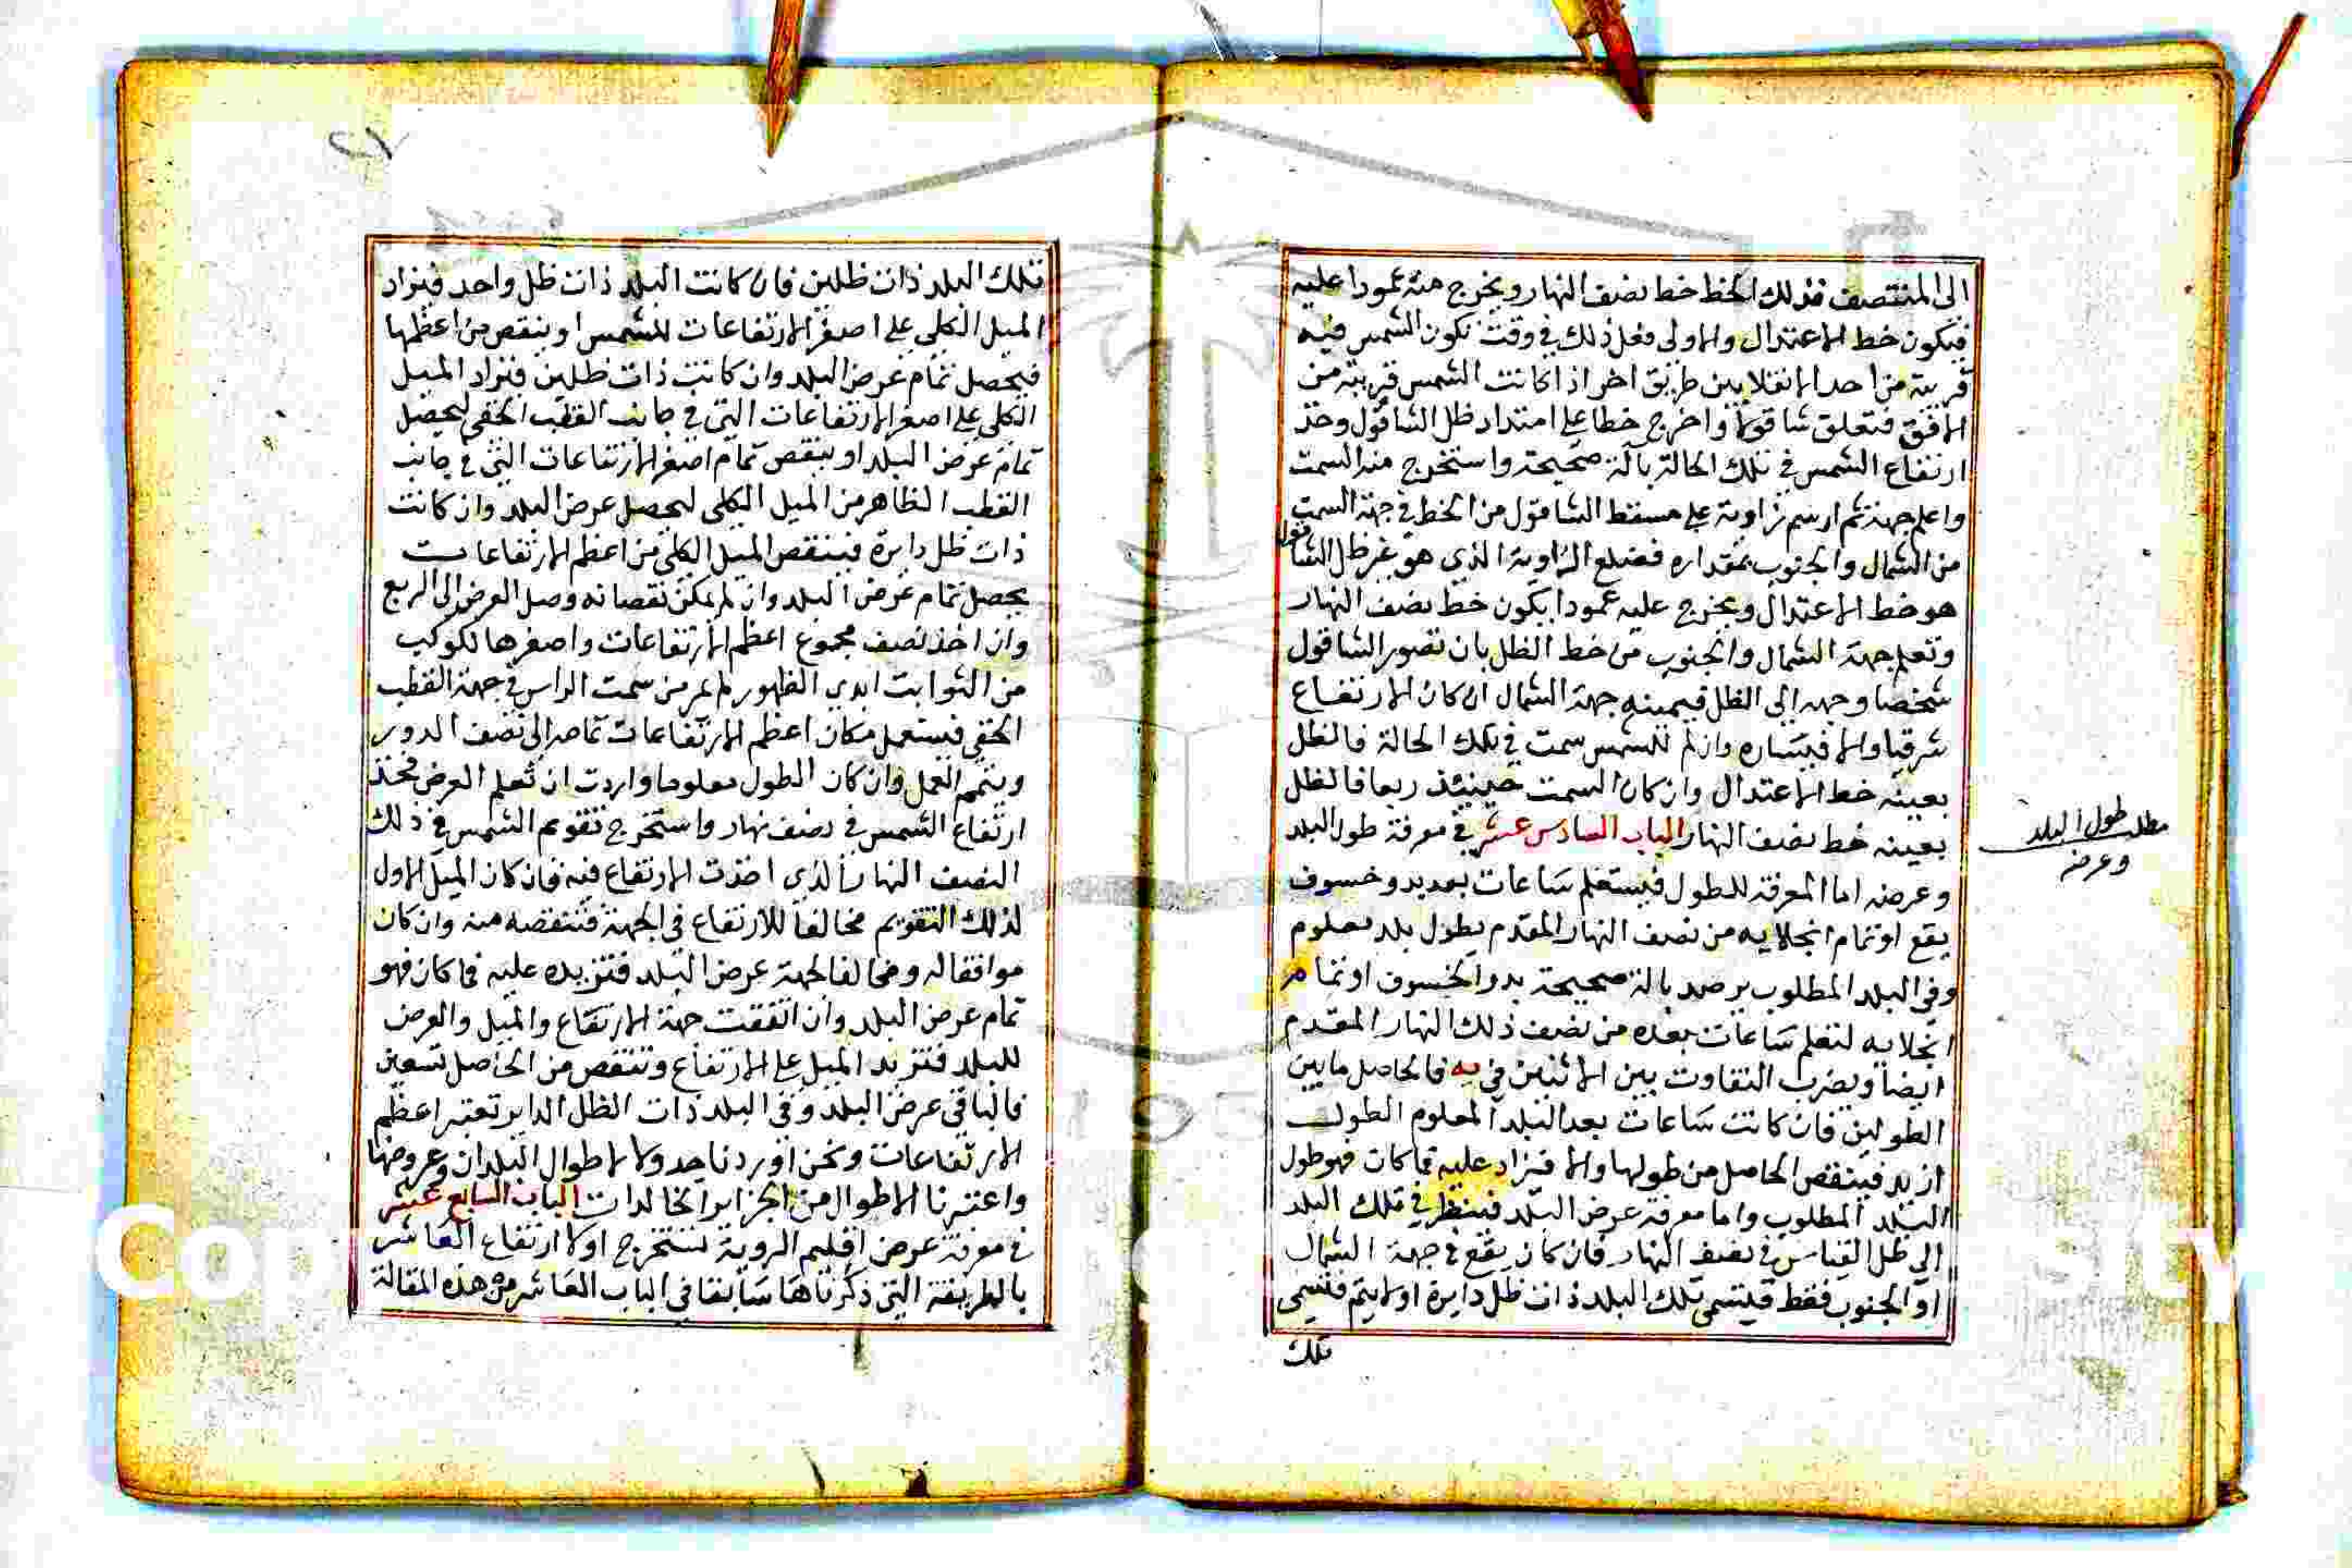 الى المنتصف فذلك الخط خط نصف النهار ويخرج منه عمودا عليه
فيكون خط الاعتدال والاولى فعل ذلك في وقت تكون الشمس فيه
قريبة من احد الانقلابين طريق اخر اذا كانت الشمس قريبة من
الافق فتعلق شاقولا واخرج خطا على امتداد ظل الشاقول وخذ
ارتفاع الشمس في تلك الحالة بآلة صحيحة واستخرج منه السمت
واعلم جهته ثم ارسم زاوية على مسقط الشاقول من الخط في جهة السمت
من الشمال والجنوب بمقداره فضلع الزاوية الذي هو غير ظل الشاقول
هو خط الاعتدال ويخرج عليه عمودا يكون خط نصف النهار
وتعلم جهة الشمال والجنوب من خط الظل بان تصور الشاقول
شخصا وجهه الى الظل فيمينه جهة الشمال ان كان الارتفاع
شرقيا والا فيساره وان لم للشمس سمت في تلك الحالة فالظل
بعينه خط الاعتدال وان كان السمت حينئذ ربعا فالظل
بعينه خط نصف النهار الباب السادس عشر في معرفة طول البلد
وعرضه اما المعرفة للطول فيستعلم ساعات بعد بدو خسوف
يقع او تمام انجلايه من نصف النهار المقدم بطول بلد معلوم
وفى البلد المطلوب يرصد بالة صحيحة بدو الخسوف او تمام
انجلايه لتعلم ساعات بعده من نصف ذلك النهار المقدم
ايضا ويضرب التفاوت بين الاثنين في يه فالحاصل ما بين
الطولين فان كانت ساعات بعد البلد المعلوم الطول
ازيد فينقص الحاصل من طولها والا فيزاد عليه فما كان فهو طول
البلد المطلوب واما معرفة عرض البلد فينظر في تلك البلد
الى ظل القياس في نصف النهار فان كان يقع في جهة الشمال
او الجنوب فقط فيسمى تلك البلد ذات ظل دايرة او لا يتم فتسمى
تلك
مطلب طول البلد
وعرضه
تلك البلد ذات ظلين فان كانت البلد ذات ظل واحد فيزاد
الميل الكلي على اصغر الارتفاعات للشمس او ينقص من اعظمها
فيحصل تمام عرض البلد وان كانت ذات ظلين فيزاد الميل
الكلي على اصغر الارتفاعات التي في جانب القطب الخفي ليحصل
تمام عرض البلد او ينقص تمام اصغر الارتفاعات التي في جانب
القطب الظاهر من الميل الكلي ليحصل عرض البلد وان كانت
ذات ظل دايرة فينقص الميل الكلي من اعظم الارتفاعات
يحصل تمام عرض البلد وان لم يمكن نقصانه وصل العرض الى الربع
وان اخذ نصف مجموع اعظم الارتفاعات واصغرها لكوكب
من الثوابت ابدي الظهور لم يمر من سمت الراس في جهة القطب
الخفي فيستعمل مكان اعظم الارتفاعات تمامه الى نصف الدور
ويتمم العمل وان كان الطول معلوما واردت ان تعلم العرض فخذ
ارتفاع الشمس في نصف نهار واستخرج تقويم الشمس في ذلك
النصف النهار الذي اخذت الارتفاع فيه فان كان الميل الاول
لذلك التقويم مخالفا للارتفاع في الجهة فتنقصه منه وان كان
موافقا له ومخالفا لجهة عرض البلد فتزيده عليه فما كان فهو
تمام عرض البلد وان اتفقت جهة الارتفاع والميل والعرض
للبلد فتزيد الميل على الارتفاع وتنقص من الحاصل تسعين
فالباقي عرض البلد وفى البلد ذات الظل الداير تعتبر اعظم
الارتفاعات ونحن اوردنا جدولا لاطوال البلدان وعروضها
واعتبرنا الاطوال من الجزاير الخالدات الباب السابع عشر
في معرفة عرض اقليم الروية نستخرج اولا ارتفاع العاشر
بالطريقة التي ذكرناها سابقا في الباب العاشر من هذه المقالة